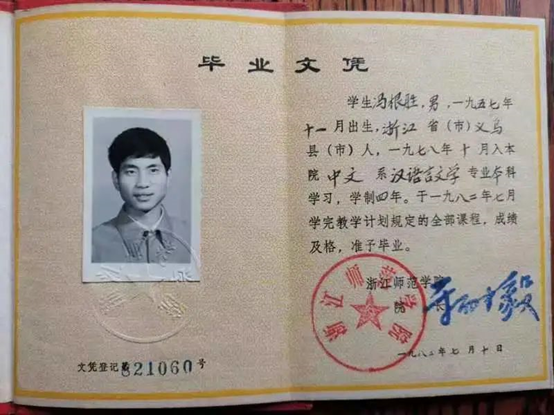 毕业文凭
学生冯根胜，男，一九五七年
十一月出生，浙江省（市）义乌
县（市）人，一九七八年十月入本
院中文系汉语言文学专业本科
学习，学制四年。于一九八二年七月
学完教学计划规定的全部课程，成绩
及格，准予毕业。
浙江师范学院
院长
浙江师范学院
一九八二年七月十日
文凭登记第821060号